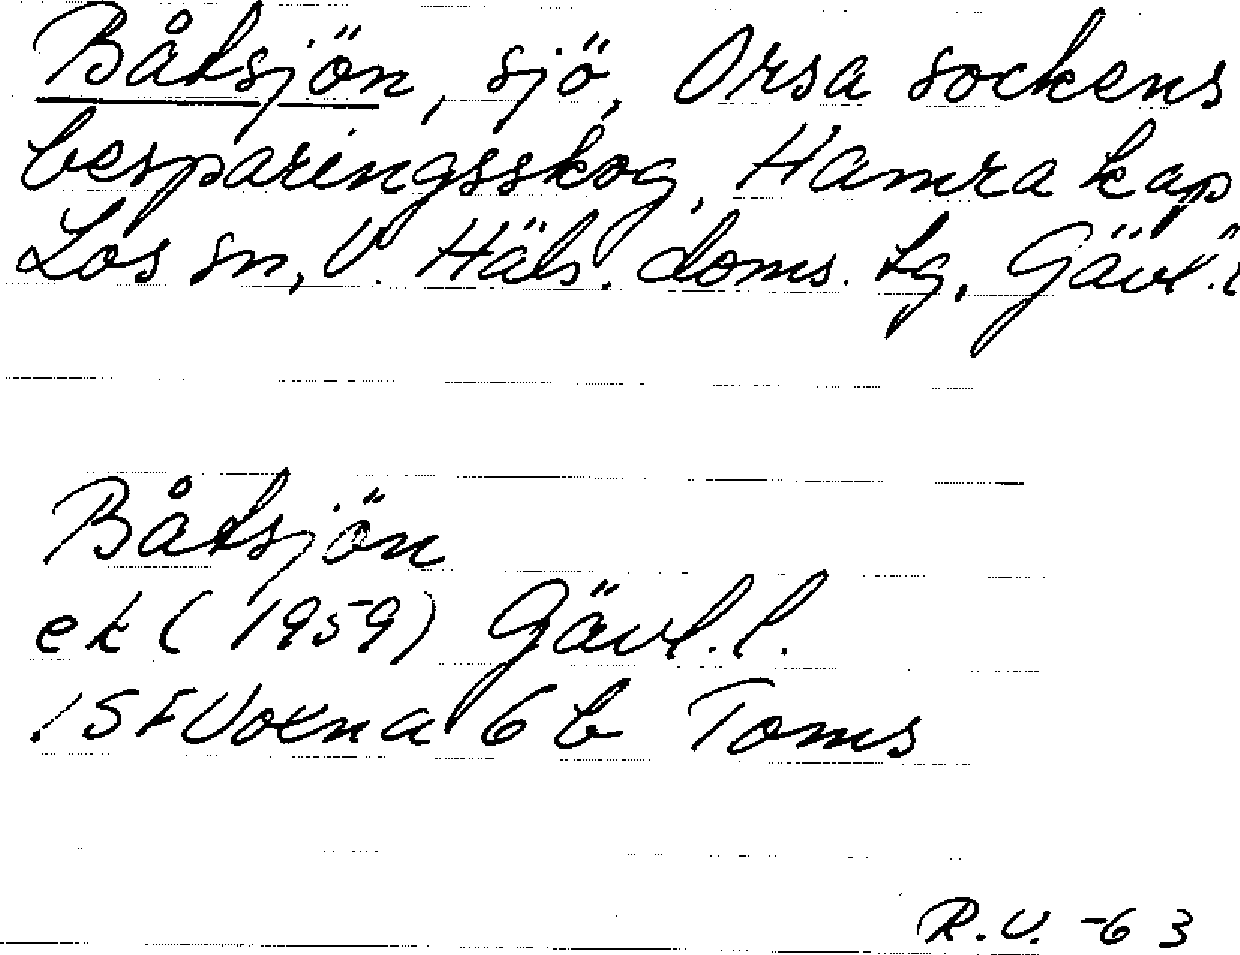 Båtsjön, sjö, Orsa sockens
besparingsskog, Hamra kap
Los sn, V. Häls. doms. tg, Gävl. l
Båtsjön
ek (1959) Gävl. l.
15F Voxna 6 b Toms
R.V. -63